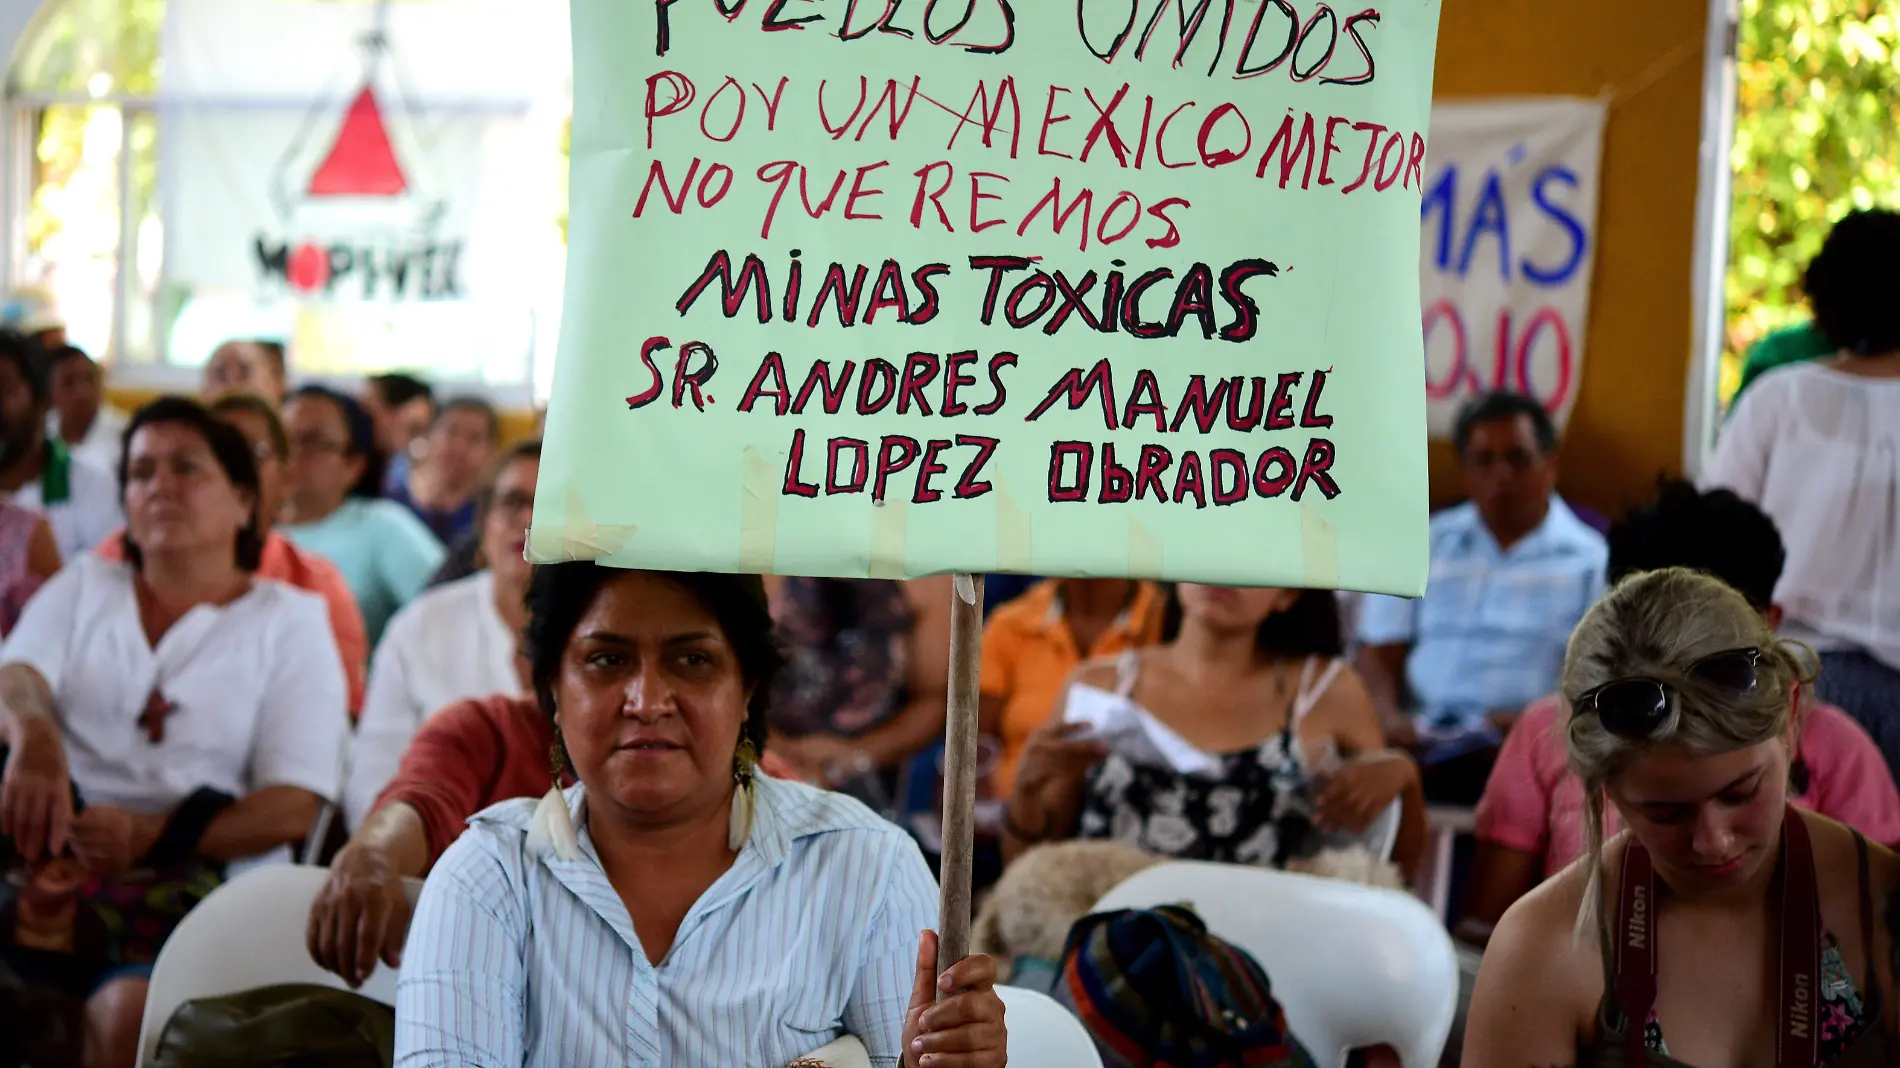 PUEBLOS UNIDOS
POR UN MEXICO MEJOR
NO QUEREMOS
MINAS TOXICAS
SR. ANDRES MANUEL
LOPEZ OBRADOR
MÁS
Nikon
Nikon